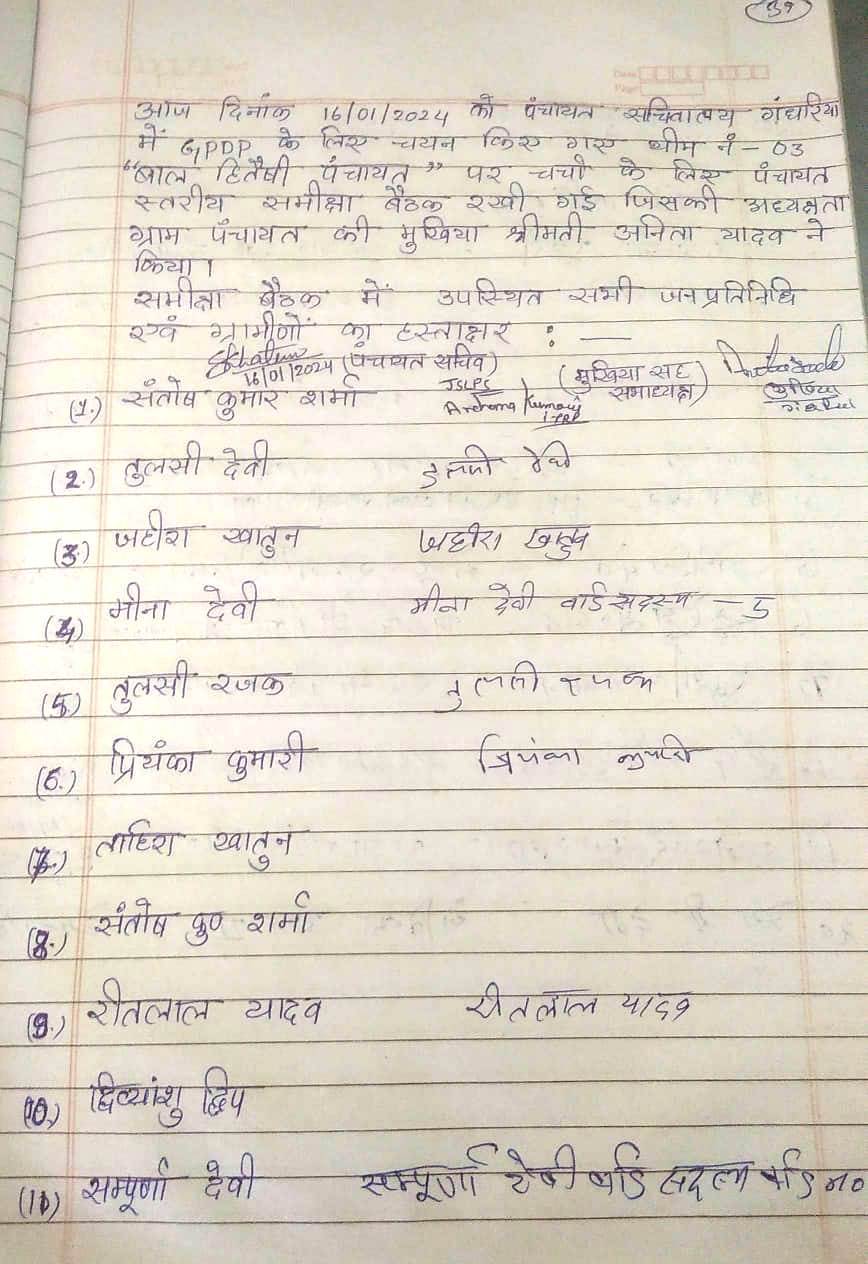 39
Date
Page
आज दिनांक 16/01/2024 को पंचायत सचिवालय गंधरिया
में GPDP के लिए चयन किए गए थीम नं - 03
"बाल हितैषी पंचायत" पर चर्चा के लिए पंचायत
स्तरीय समीक्षा बैठक रखी गई जिसकी अध्यक्षता
ग्राम पंचायत की मुखिया श्रीमती अनिता यादव ने
किया।
समीक्षा बैठक में उपस्थित सभी जनप्रतिनिधि
एवं ग्रामीणों का हस्ताक्षर : —
16/01/2024 (पंचायत सचिव) (मुखिया सह सभाध्यक्ष)
(1.) संतोष कुमार शर्मा JSLPS Archana Kumari
(2.) तुलसी देवी
(3.) जहीरा खातुन जहीरा खातुन
(4) मीना देवी मीना देवी वार्ड सदस्य - 5
(5.) तुलसी रजक
(6.) प्रियंका कुमारी प्रियंका कुमारी
(7.) ताहिरा खातुन
(8.) संतोष कु० शर्मा
(9.) रीतलाल यादव रीतलाल यादव
(10.) द्विव्यांशु द्विप
(11) सम्पूर्णा देवी सम्पूर्णा देवी वार्ड सदस्य वार्ड no